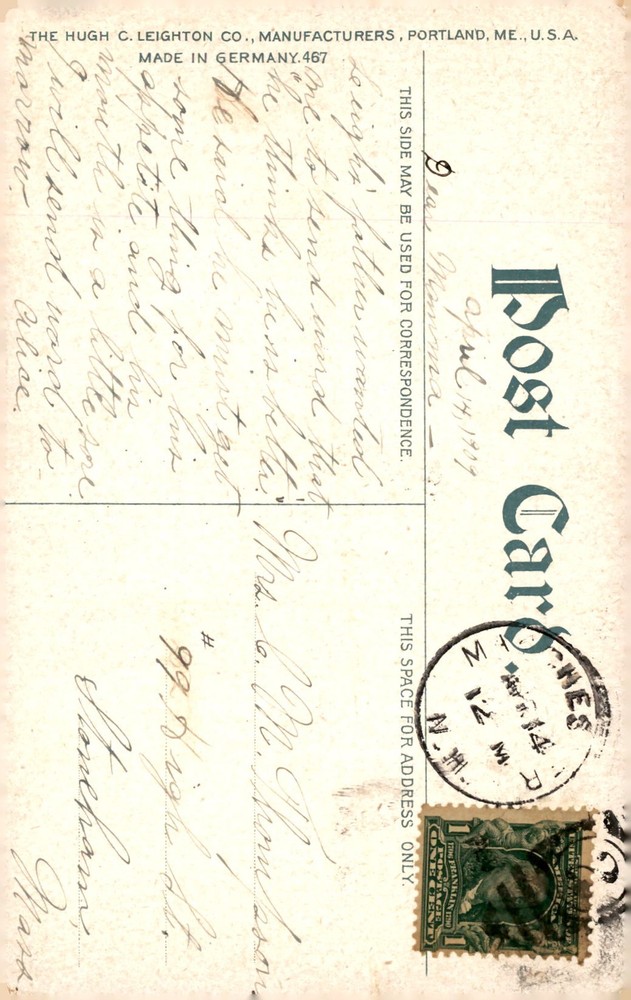 THE HUGH C. LEIGHTON CO., MANUFACTURERS, PORTLAND, ME., U.S.A.
MADE IN GERMANY. 467
Post Card.
THIS SIDE MAY BE USED FOR CORRESPONDENCE.
April 14, 1909
Dear Mamma —
Leighs' father wanted
me to send word that
he thinks he is better.
He said he must get
some thing for his
appetite and his
mouth is a little sore
I will send word to-
morrow.
Alice.
THIS SPACE FOR ADDRESS ONLY.
Mrs. M. Thompson
# 99 High St.
Stoneham,
Mass.
12 M
14
N.H.
1706 FRANKLIN 1790
POSTAGE
1 ONE CENT 1